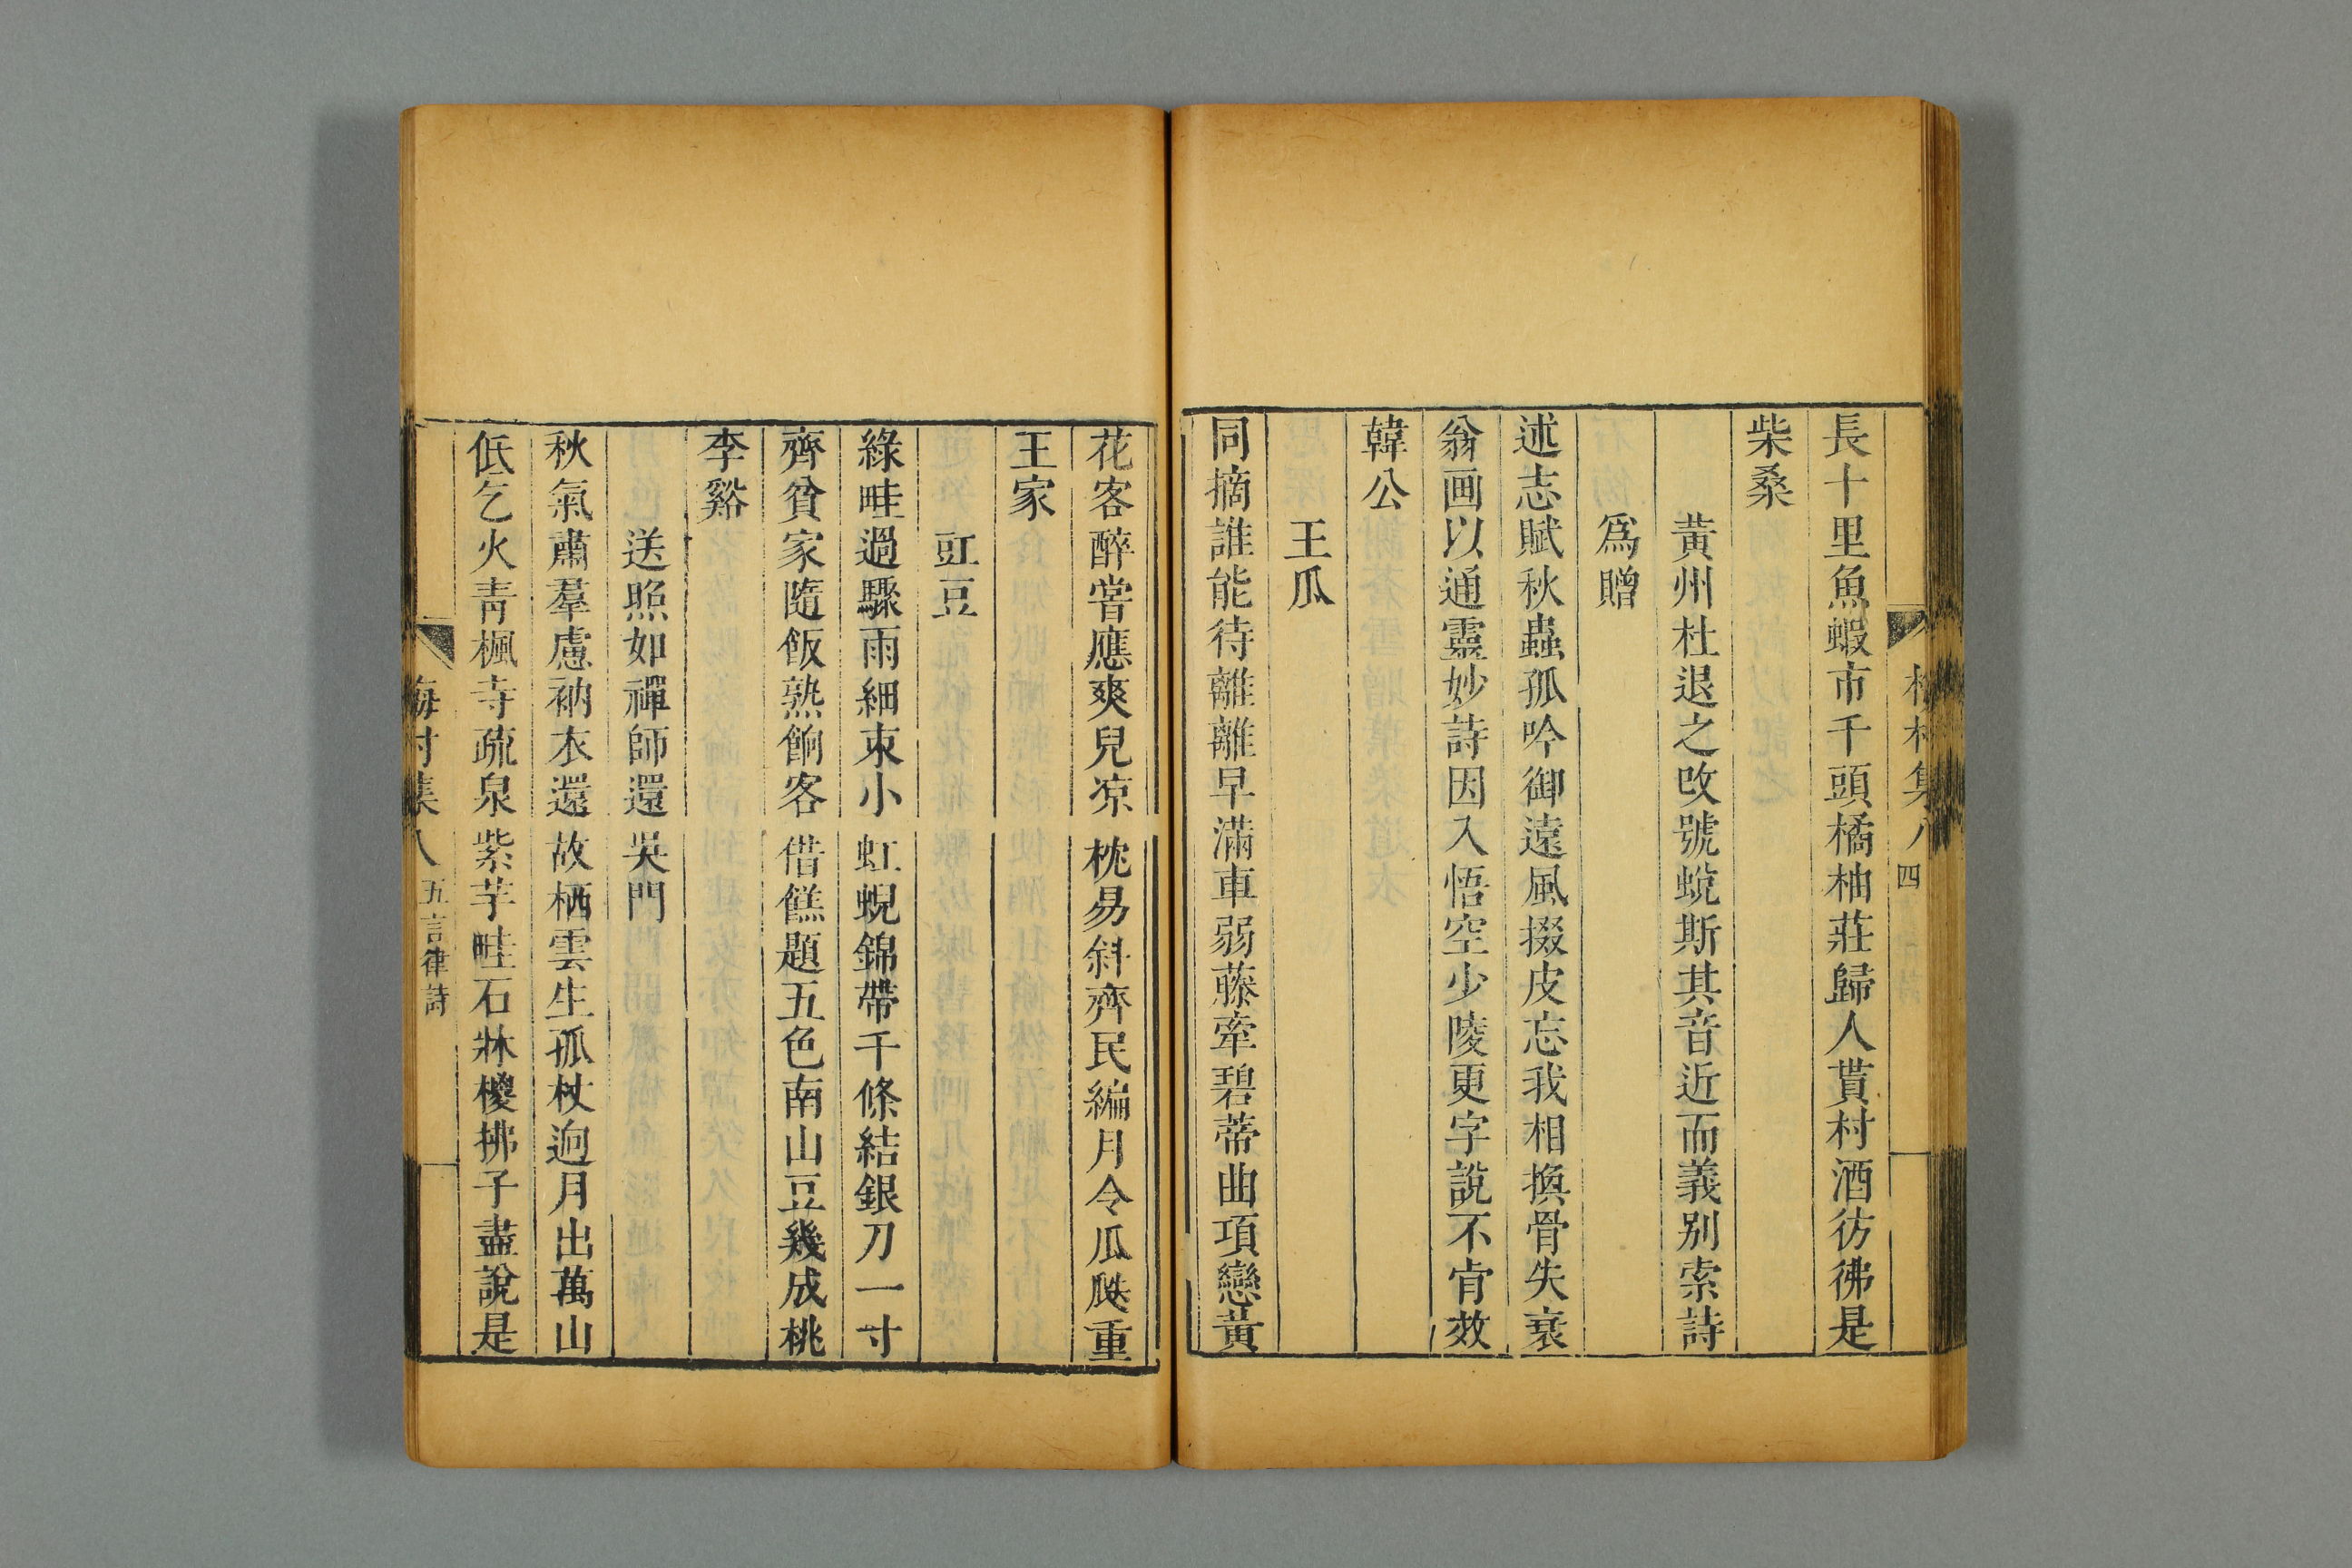 長十里魚蝦市千頭橘柚莊歸人貰村酒彷彿是
柴桑
黃州杜退之攺號蛻斯其音近而義別索詩
爲贈
述志賦秋蟲孤吟御遠風掇皮忘我相換骨失衰
翁画以通靈妙詩因入悟空少陵更字說不肯效
韓公
王瓜
同摘誰能待離離早滿車弱藤牽碧蒂曲項戀黃
花客醉嘗應爽兒凉枕易斜齊民編月令瓜瓞重
王家
豇豆
綠畦過驟雨細束小虹蜺錦帶千條結銀刀一寸
齊貧家隨飯熟餉客借餻題五色南山豆幾成桃
李谿
送照如禪師還吳門
秋氣肅羣慮衲衣還故栖雲生孤杖逈月出萬山
低乞火青楓寺疏泉紫芋畦石牀椶拂子盡說是
梅村集八 五言律詩
村集八 四